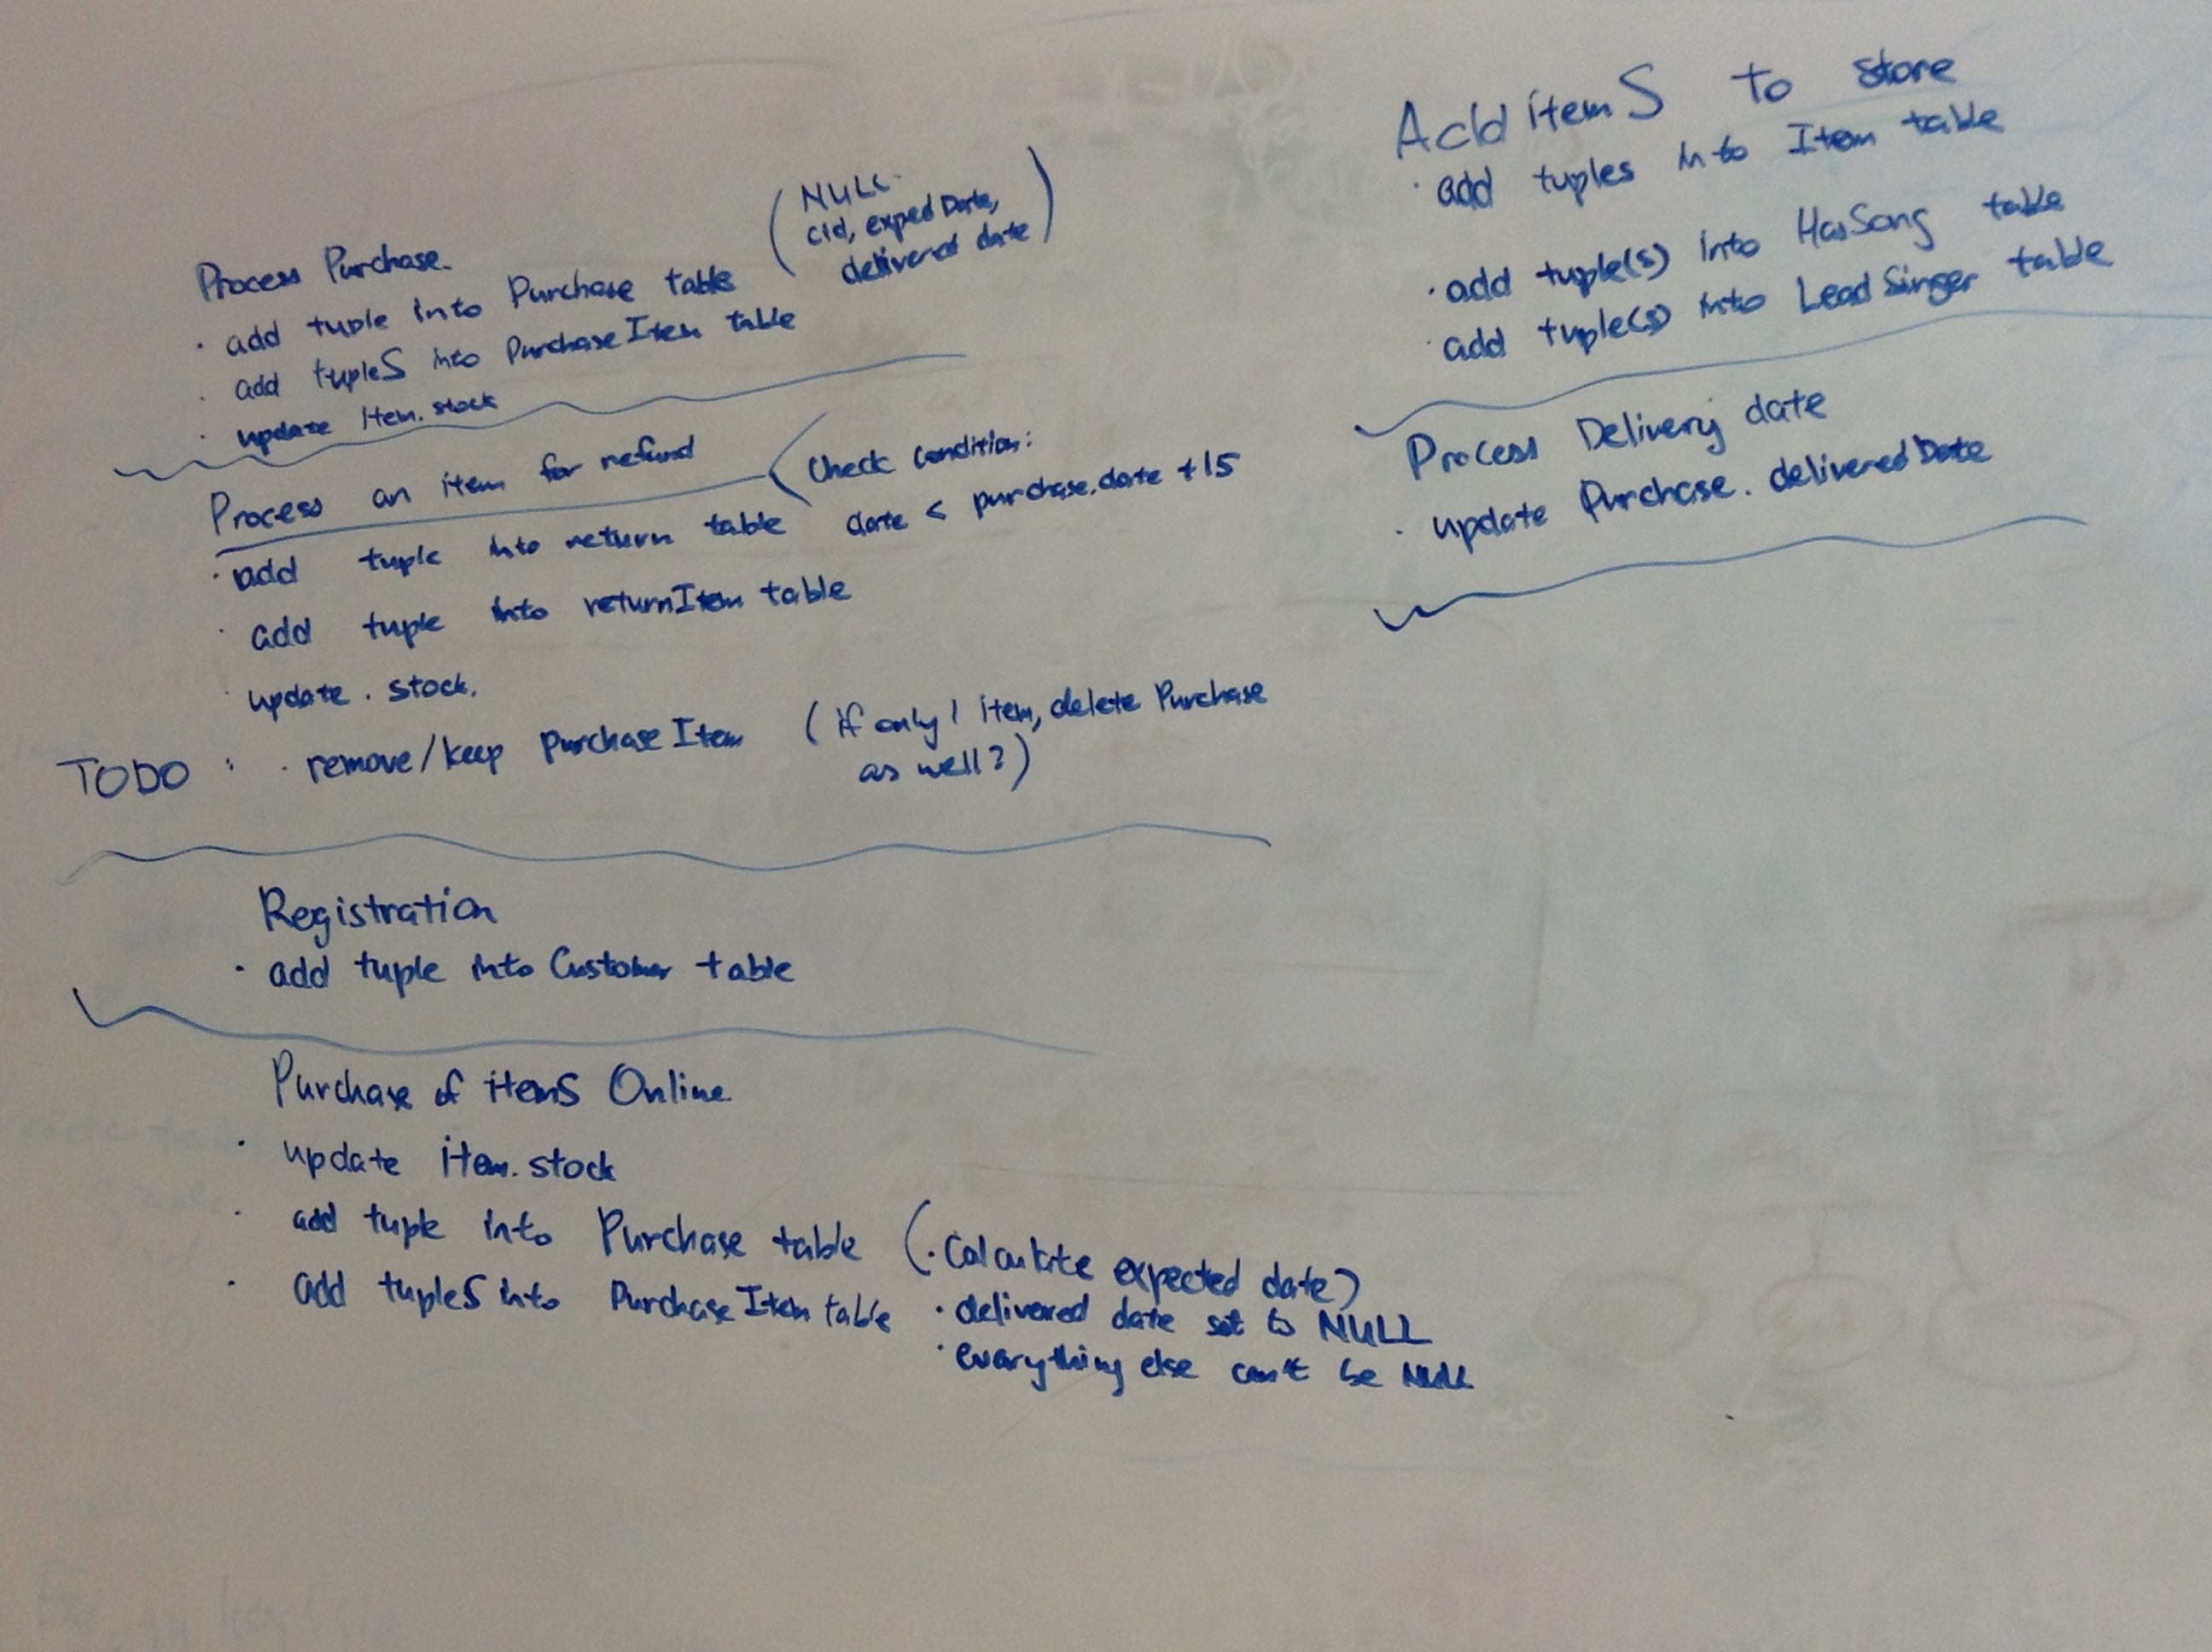 Process Purchase.
· add tuple into Purchase table
(NULL
cid, expedDate,
delivered date)
· add tupleS into PurchaseItem table
· update item.stock
Process an item for refund
(Check condition:
date < purchase.date +15
· add tuple into return table
· add tuple into returnItem table
· update . stock.
TODO : · remove/keep PurchaseItem (if only 1 item, delete Purchase
as well?)
Registration
· add tuple into Customer table
Purchase of itemS Online
· update item.stock
· add tuple into Purchase table (· Calculate expected date)
· add tupleS into PurchaseItem table · delivered date set to NULL
· everything else can't be NULL
Add itemS to store
· add tuples into Item table
· add tuple(s) into HasSong table
· add tuple(s) into LeadSinger table
Process Delivery date
· update Purchase. deliveredDate